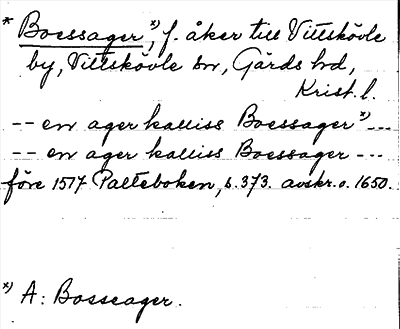 * Boessager *), f. åker till Vittskövle
by, Vittskövle sn, Gärds hd,
Krist. l.
-- en ager kalliss Boessager *) ---
-- en ager kalliss Boessager ---
före 1517 Palteboken, s. 373. avskr. o. 1650.
*) A: Bosseager.